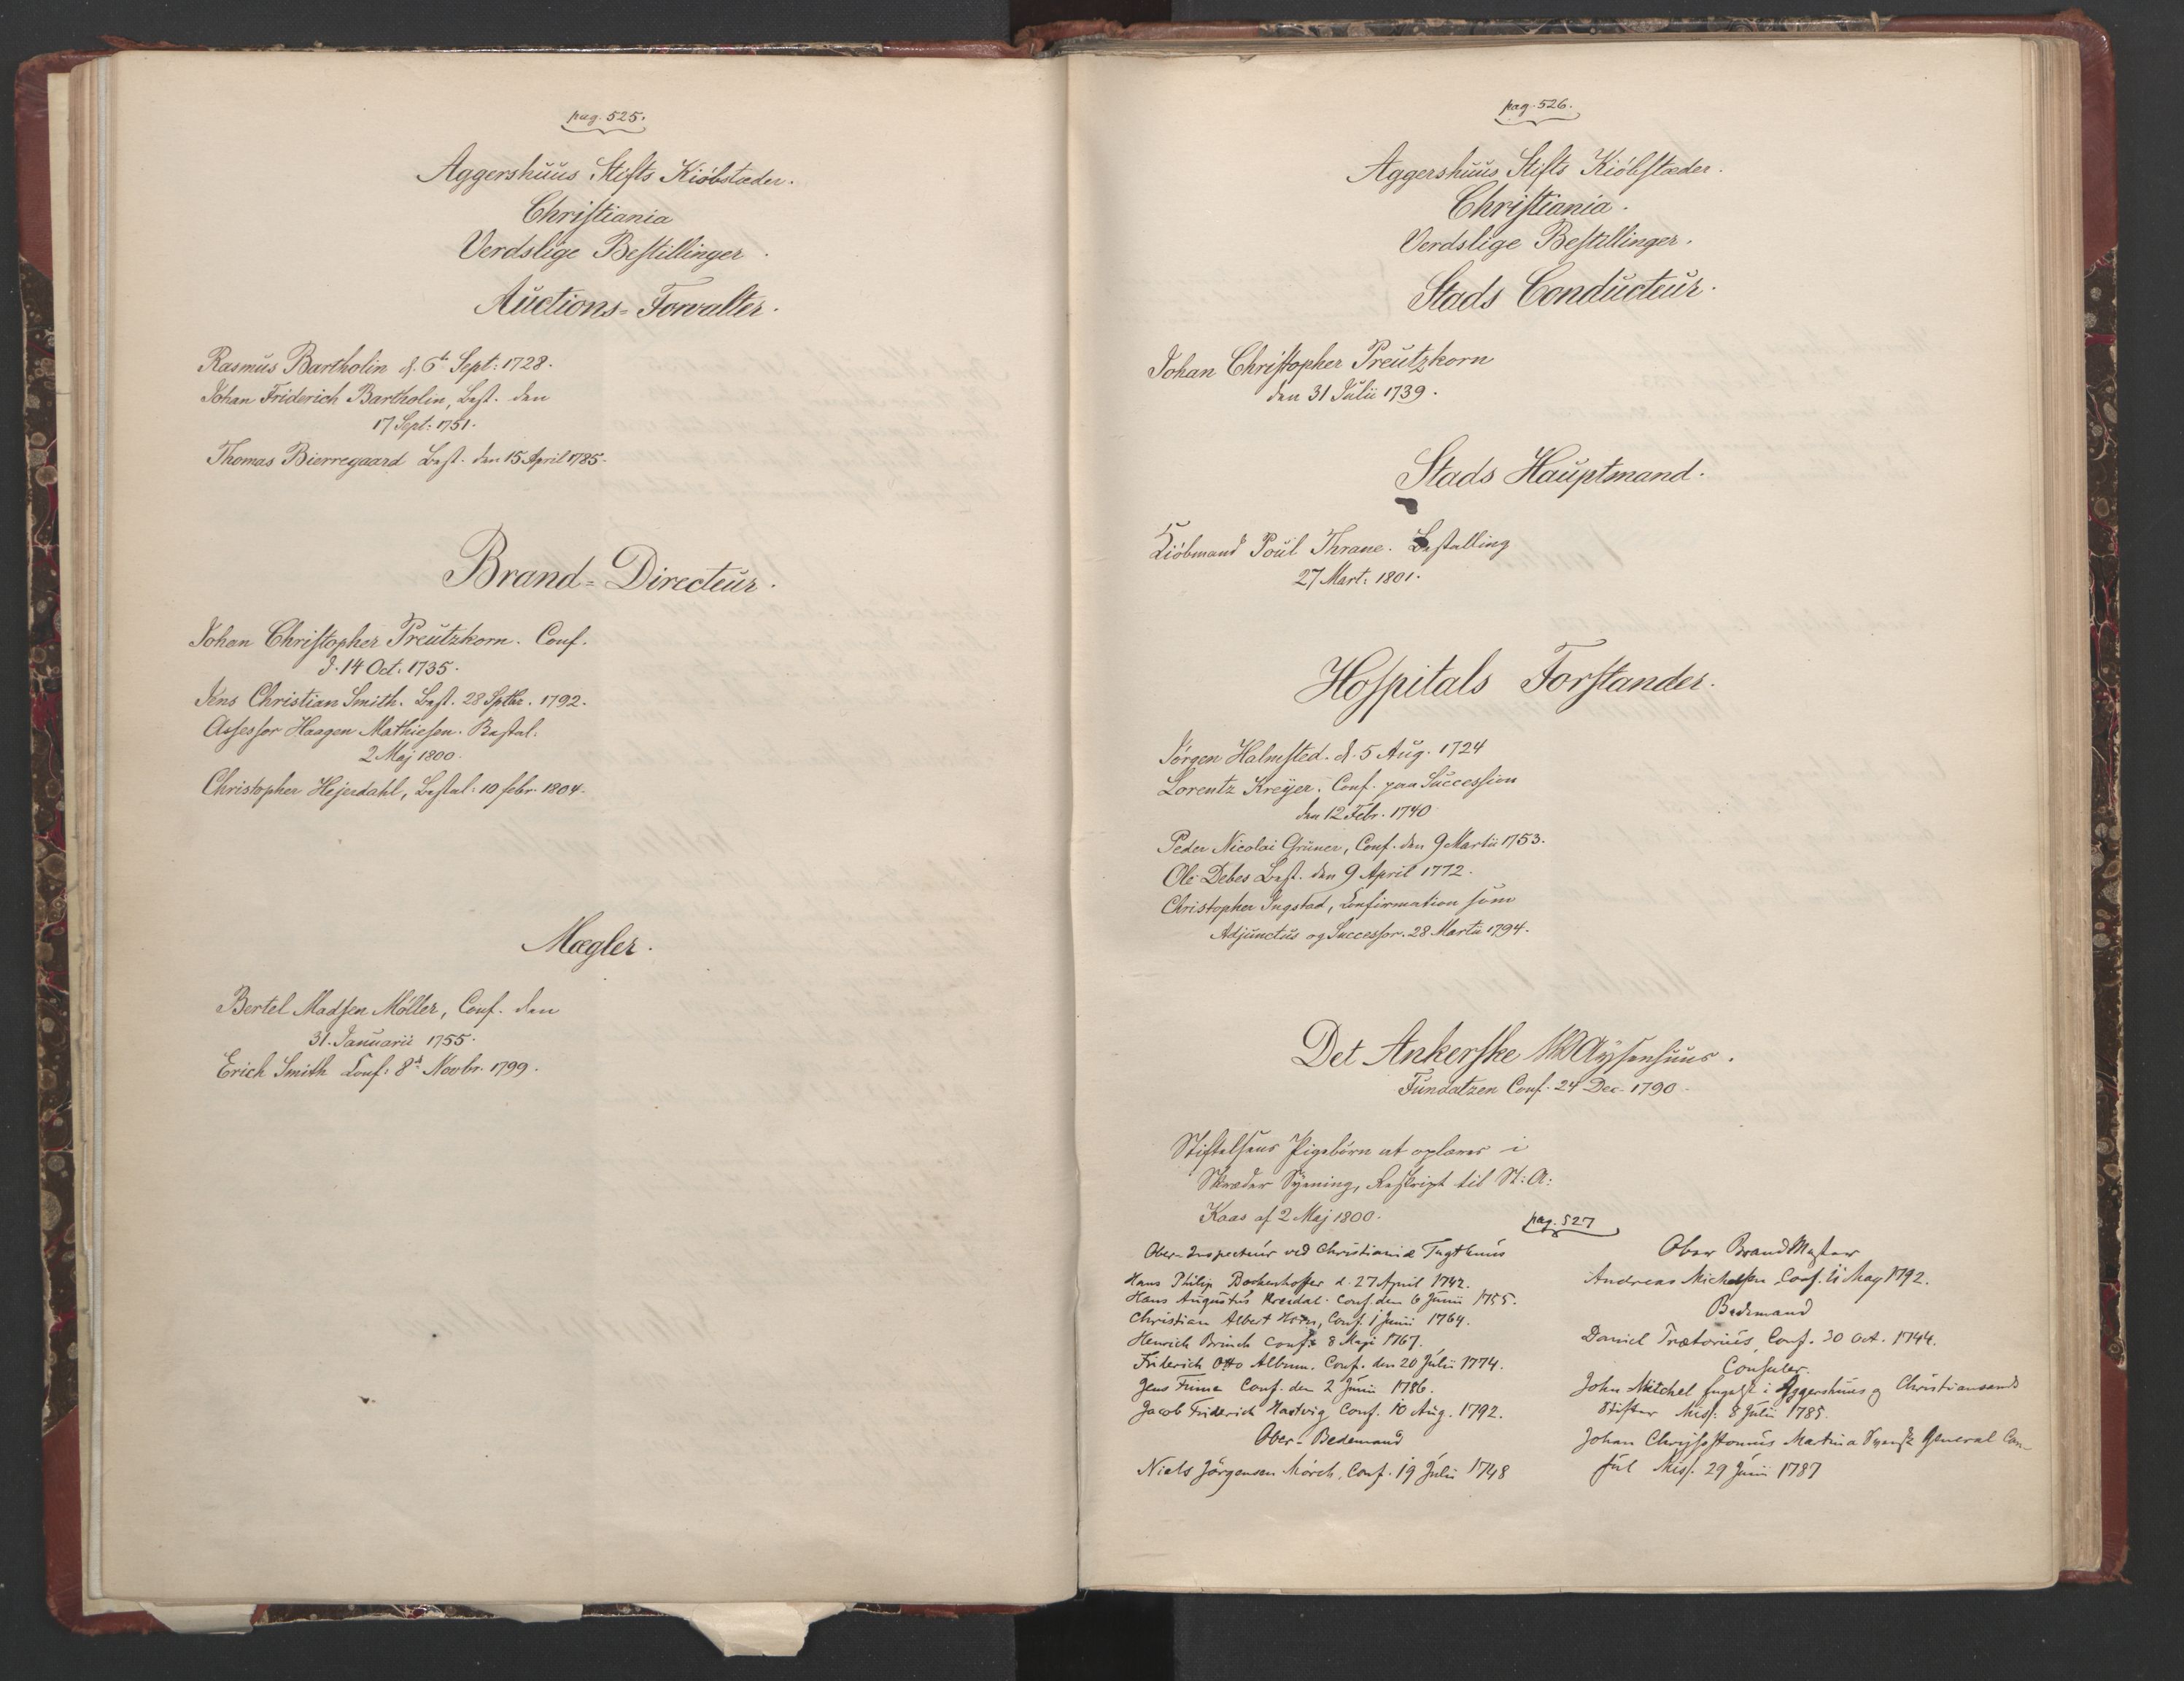 pag. 525.
Aggershuus Stifts Kiöbstæder.
Christiania
Verdslige Bestillinger.
Auctions-Forvalter.
Rasmus Bartholin d. 6te Sept: 1728.
Johan Friderich Bartholin, Best. den
17 Sept: 1751.
Thomas Bierregaard Best. den 15 April 1785.
Brand-Directeur.
Johan Christopher Preutzkorn. Conf.
d. 14 Oct: 1735.
Jens Christian Smith. Best. 28 Sptbr. 1792.
Assessor Haagen Mathiesen. Bestal.
2 Maj 1800.
Christopher Hejerdahl, Bestal: 10 febr. 1804.
Mægler.
Bertel Madsen Möller, Conf. den
31. Januarii 1755.
Erich Smith Conf: 8d Novbr. 1799.
pag. 526.
Aggershuus Stifts Kiöbstæder.
Christiania.
Verdslige Bestillinger.
Stads Conducteur.
Johan Christopher Preutzkorn
den 31 Julii 1739.
Stads Hauptmand.
Kiöbmand Poul Thrane. Bestalling
27 Mart: 1801.
Hospitals Forstander.
Jörgen Halmsted. d. 5 Aug. 1724
Lorentz Kreÿer. Conf. paa Succession
den 12 Febr. 1740
Peder Nicolai Grüner, Conf. den 9 Martii 1753.
Ole Debes Best. den 9 April 1772.
Christopher Ingstad, Confirmation som
Adjunctus og Successor. 28 Martii 1794.
Det Ankerske Waÿsenhuus.
Fundatzen Conf. 24 Dec. 1790.
Stiftelsens Pigebörn at oplæres i
Skræder Syening, Rescript til St: A:
Kaas af 2 Maj 1800.
pag. 527
Ober-Inspecteur ved Christianiæ Tugthuus
Hans Philip Bockenhoffer d. 27 April 1742.
Hans Augustus Kreidal. Conf. den 6 Junii 1755.
Christian Albert Horn, Conf. 1 Junii 1764.
Henrich Brinch Conf. 8 Maji 1767.
Friderich Otto Album. Conf. den 20 Julii 1774.
Jens Conf. den 2 Junii 1786.
Jacob Friderich Hartvig Conf. 10 Aug. 1792.
Ober-Bedemand
Niels Jörgensen Mörch, Conf. 19 Julii 1748
Ober BrandMester
Andreas Michelsen Conf. 11 May 1792.
Bedemand
Daniel Prætorius, Conf. 30 Oct. 1744.
Consuler.
John Mitchel Engelsk i Aggershuus og Christiansands
Stifter Miss. 8 Julii 1785.
Johan Chrysostomus Martin a Svensk General Con-
sul Miss. 29 Junii 1787